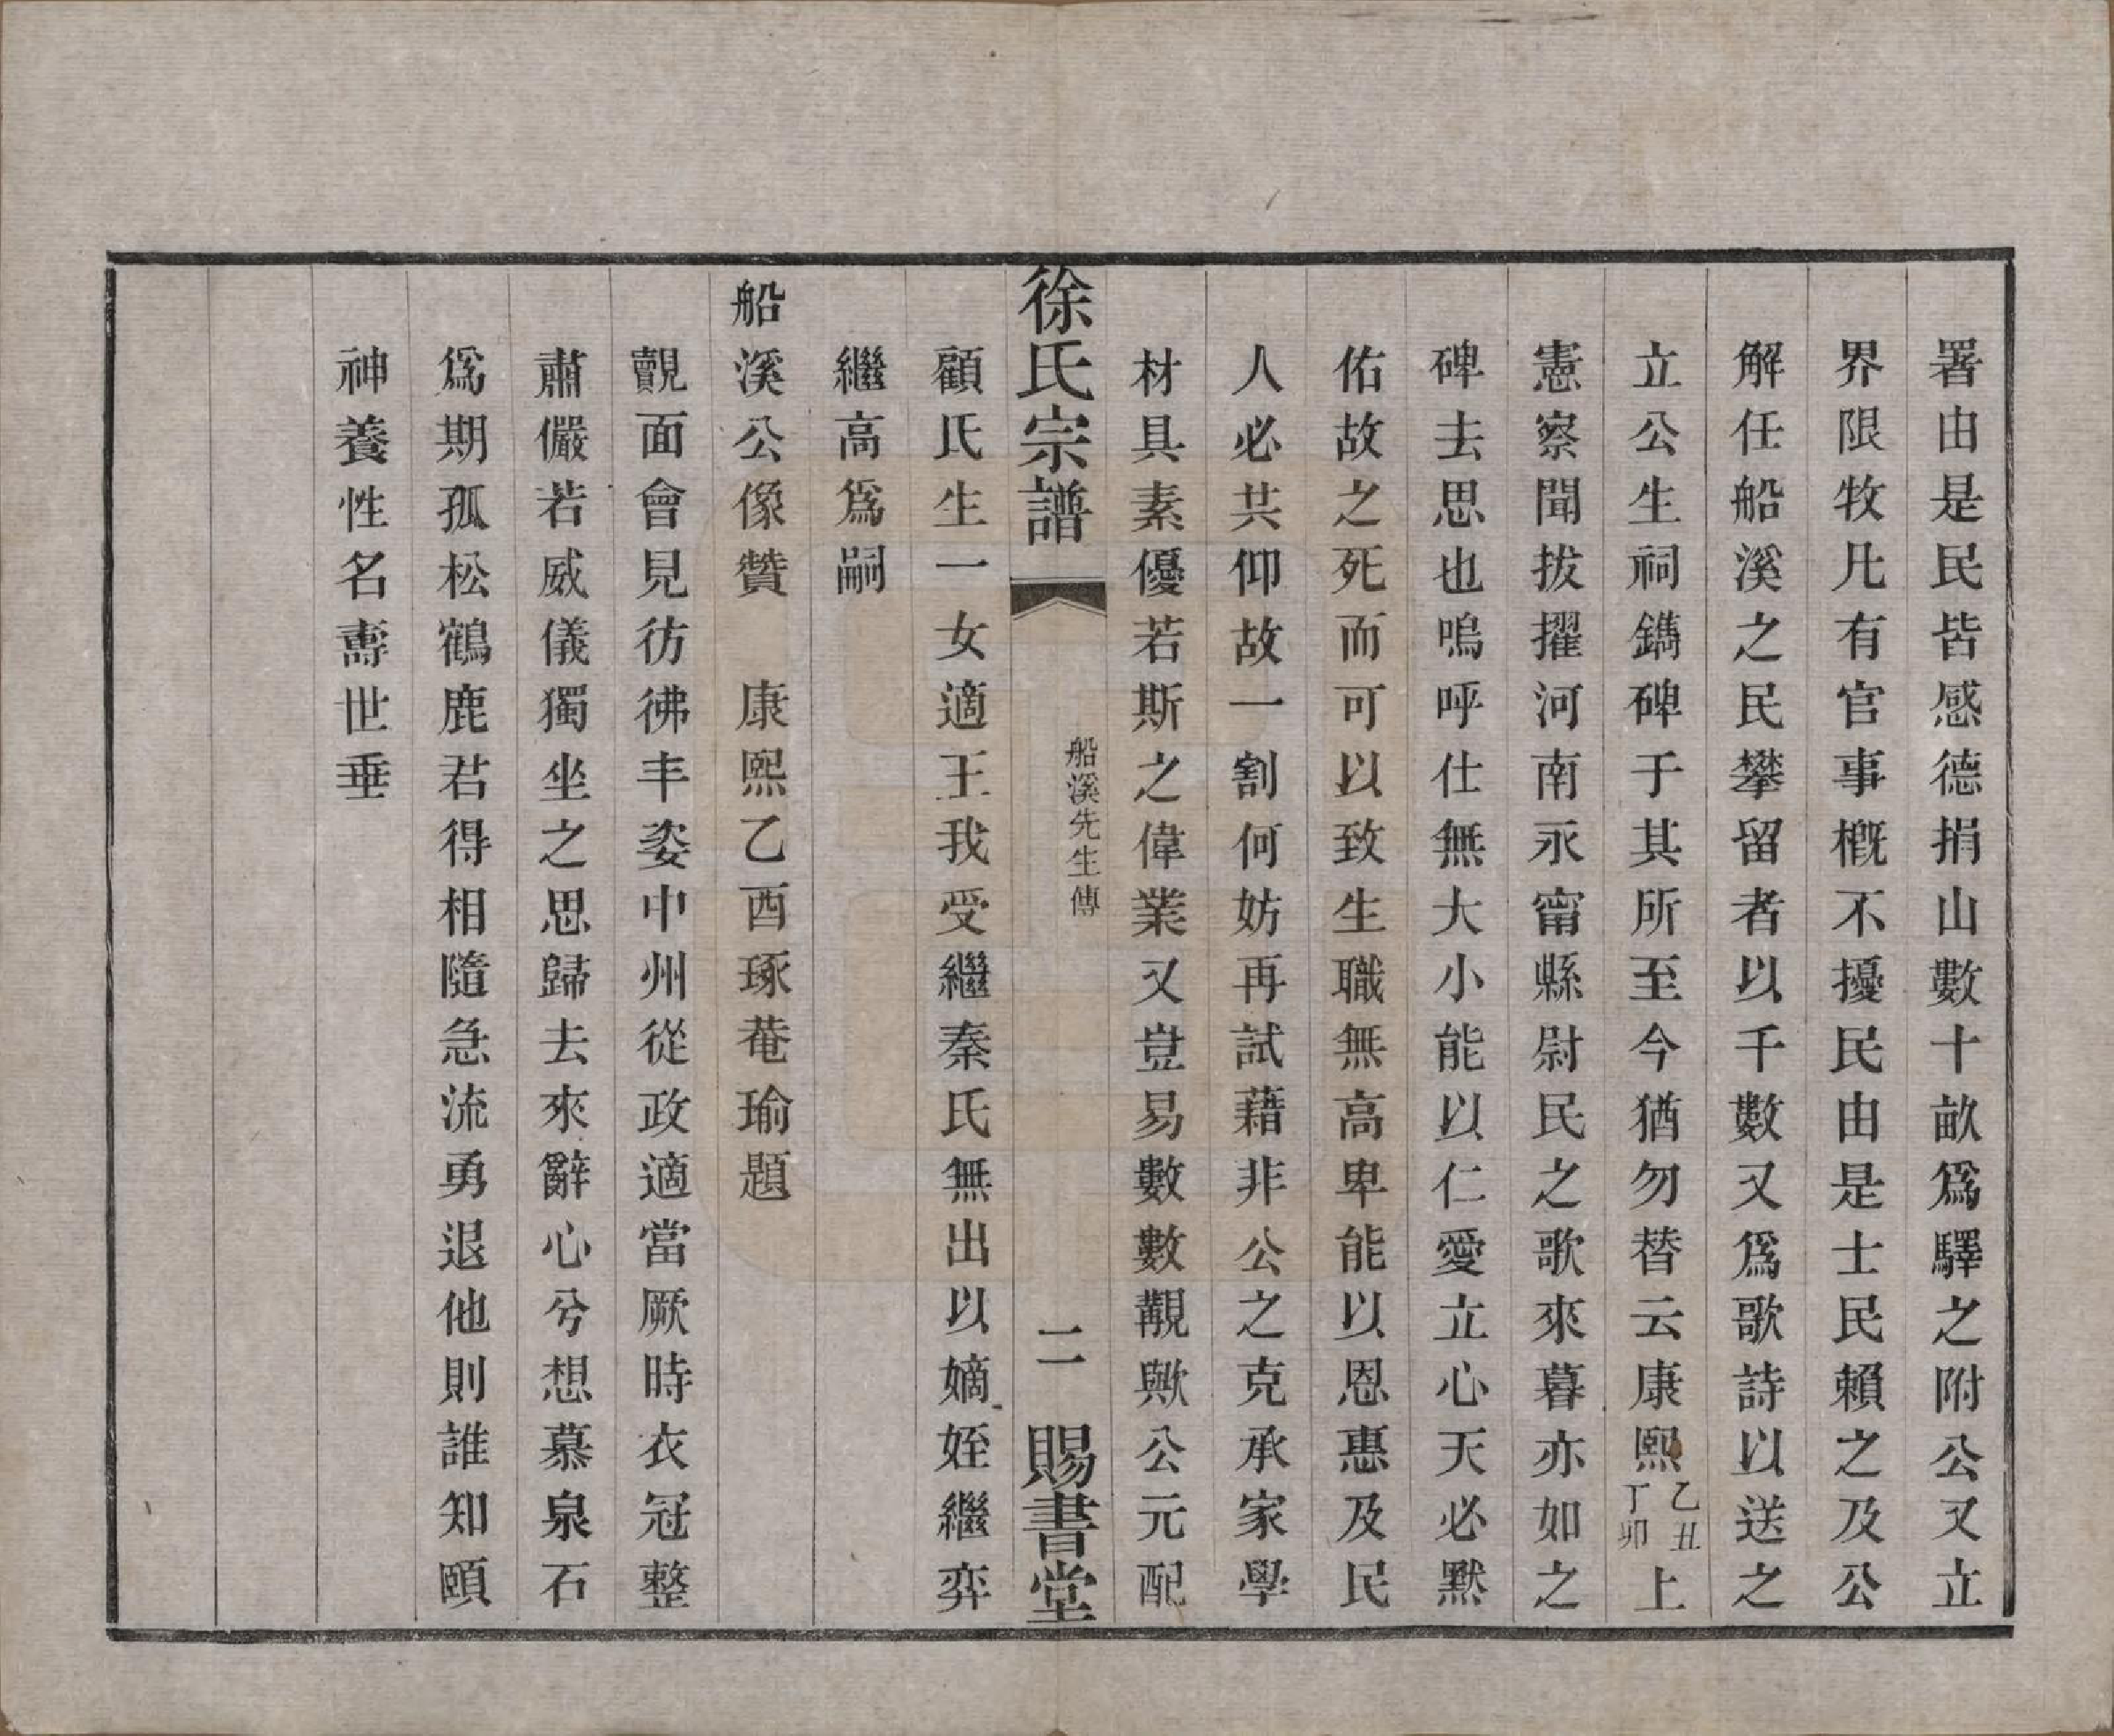 署由是民皆感德捐山數十畝爲驛之附公又立
界限牧凡有官事槪不擾民由是士民賴之及公
解任船溪之民攀留者以千數又爲歌詩以送之
立公生祠鐫碑于其所至今猶勿替云康熙乙丑丁卯上
憲察聞拔擢河南永甯縣尉民之歌來暮亦如之
碑去思也嗚呼仕無大小能以仁愛立心天必黙
佑故之死而可以致生職無高卑能以恩惠及民
人必共仰故一割何妨再試藉非公之克承家學
材具素優若斯之偉業又豈易數數覯歟公元配
徐氏宗譜
船溪先生傳
二
賜書堂
顧氏生一女適王我受繼秦氏無出以嫡姪繼弈
繼高爲嗣
船溪公像贊 康熙乙酉琢菴瑜題
覿面會見彷彿丰姿中州從政適當厥時衣冠整
肅儼若威儀獨坐之思歸去來辭心兮想慕泉石
爲期孤松鶴鹿君得相隨急流勇退他則誰知頤
神養性名壽世垂